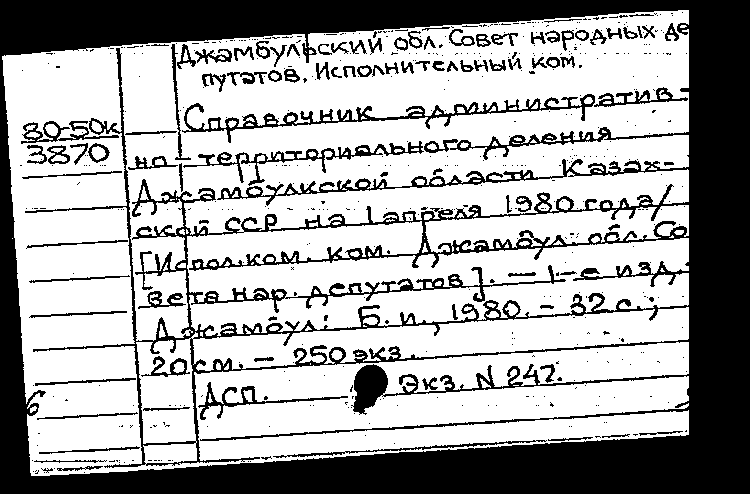 Джамбульский обл. Совет народных де
путатов. Исполнительный ком.
80-50к
3870
Справочник административ-
но-территориального деления
Джамбулкской области Казах-
ской ССР на 1 апреля 1980 года/
[Испол.ком. ком. Джамбул. обл. Со
вета нар. депутатов]. — 1-е изд. -
Джамбул: Б. и., 1980. - 32 с.;
20 см. - 250 экз.
ДСП. Экз. N 247.
6